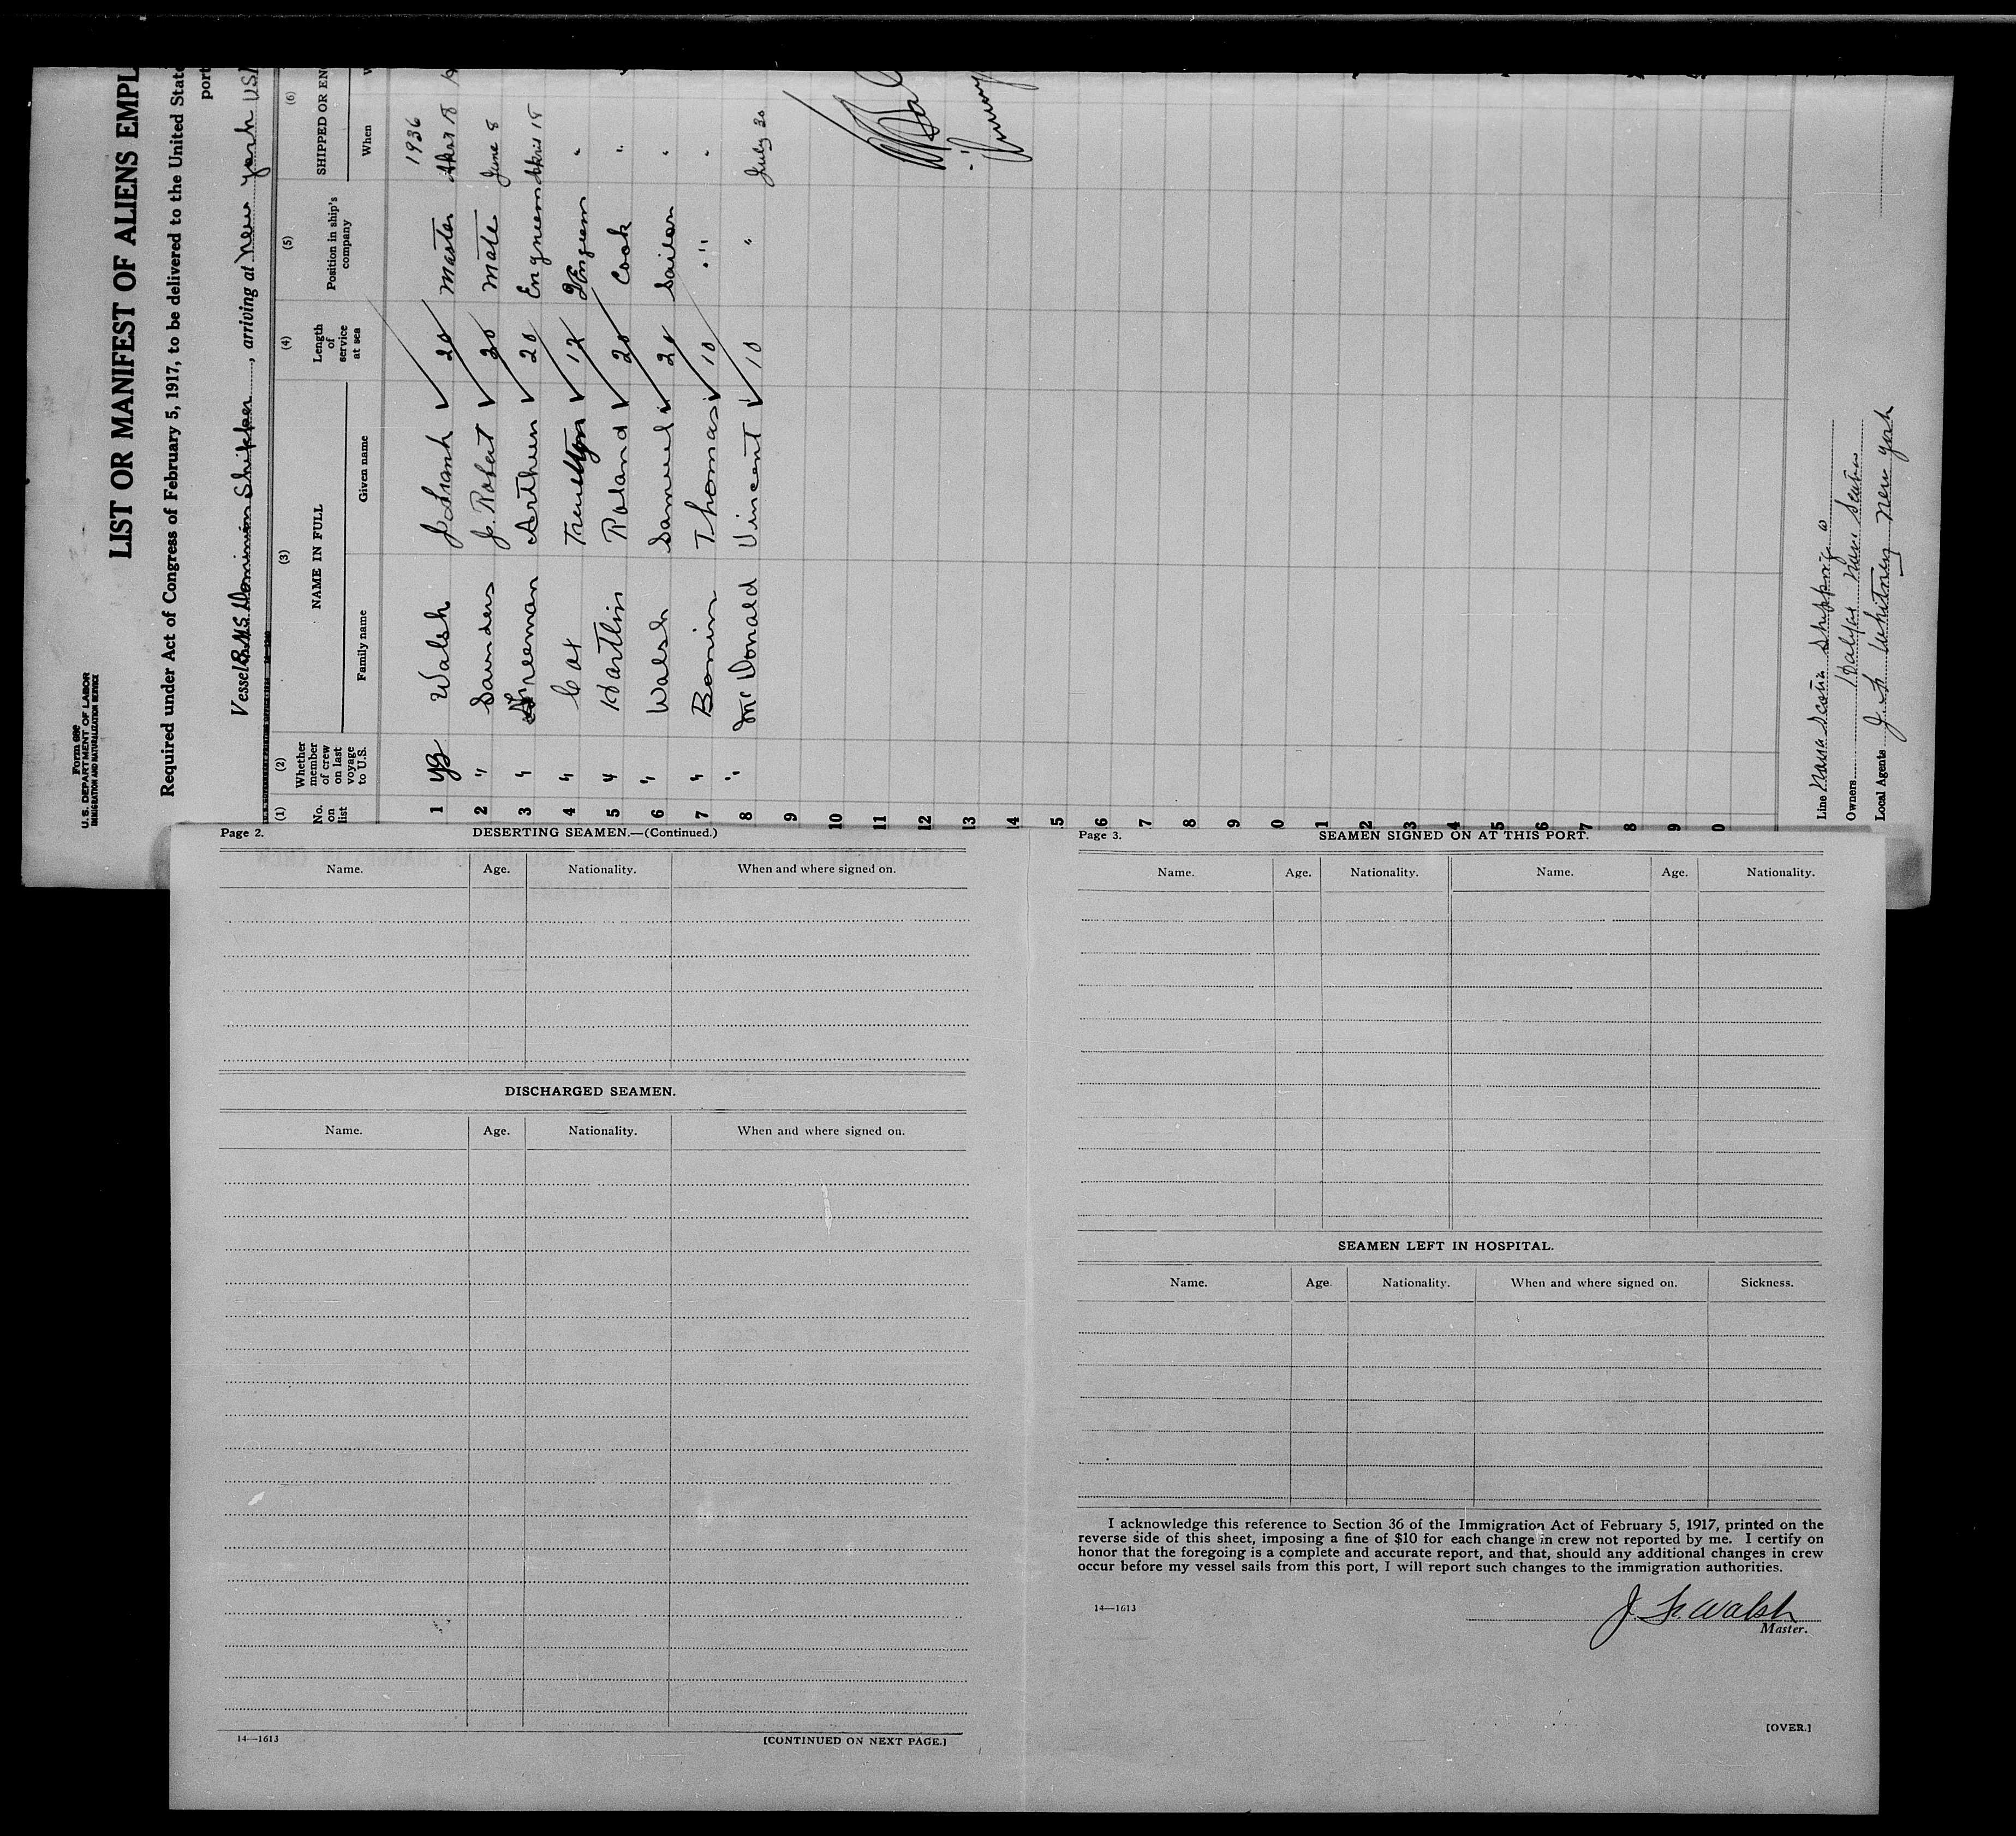 Form 689
U. S. DEPARTMENT OF LABOR
IMMIGRATION AND NATURALIZATION SERVICE
LIST OR MANIFEST OF ALIENS EMPL
Required under Act of Congress of February 5, 1917, to be delivered to the United State
port
Vessel Shipper, arriving at New York USA
(1) (2) (3) (4) (5) (6)
No. on list Whether member of crew on last voyage to U.S. NAME IN FULL Length of service at sea Position in ship's company SHIPPED OR EN
Family name Given name When
1936
1 Yes Walsh J Frank 20 Master April 18
2 " Saunders J. Robert 20 Mate June 8
3 " Freeman Arthur 20 Engineer April 18
4 " Cox 12 2 Engineer "
5 " Hartlin Roland 20 Cook "
6 " Walsh Samuel 20 Sailor "
7 " Bonin Thomas 10 " "
8 " McDonald Vincent 10 " July 30
9
10
11
12
13
14
5
6
7
8
9
0
1
2
3
4
5
6
7
8
9
0
Line Nova Scotia Shipping Co
Owners Halifax Nova Scotia
Local Agents J. F. Whitney New York
Page 2. DESERTING SEAMEN.—(Continued.)
Name. Age. Nationality. When and where signed on.
DISCHARGED SEAMEN.
Name. Age. Nationality. When and where signed on.
14—1613 [CONTINUED ON NEXT PAGE.]
Page 3. SEAMEN SIGNED ON AT THIS PORT.
Name. Age. Nationality. Name. Age. Nationality.
SEAMEN LEFT IN HOSPITAL.
Name. Age. Nationality. When and where signed on. Sickness.
I acknowledge this reference to Section 36 of the Immigration Act of February 5, 1917, printed on the
reverse side of this sheet, imposing a fine of $10 for each change in crew not reported by me. I certify on
honor that the foregoing is a complete and accurate report, and that, should any additional changes in crew
occur before my vessel sails from this port, I will report such changes to the immigration authorities.
14—1613
J. F. Walsh
Master.
[OVER.]